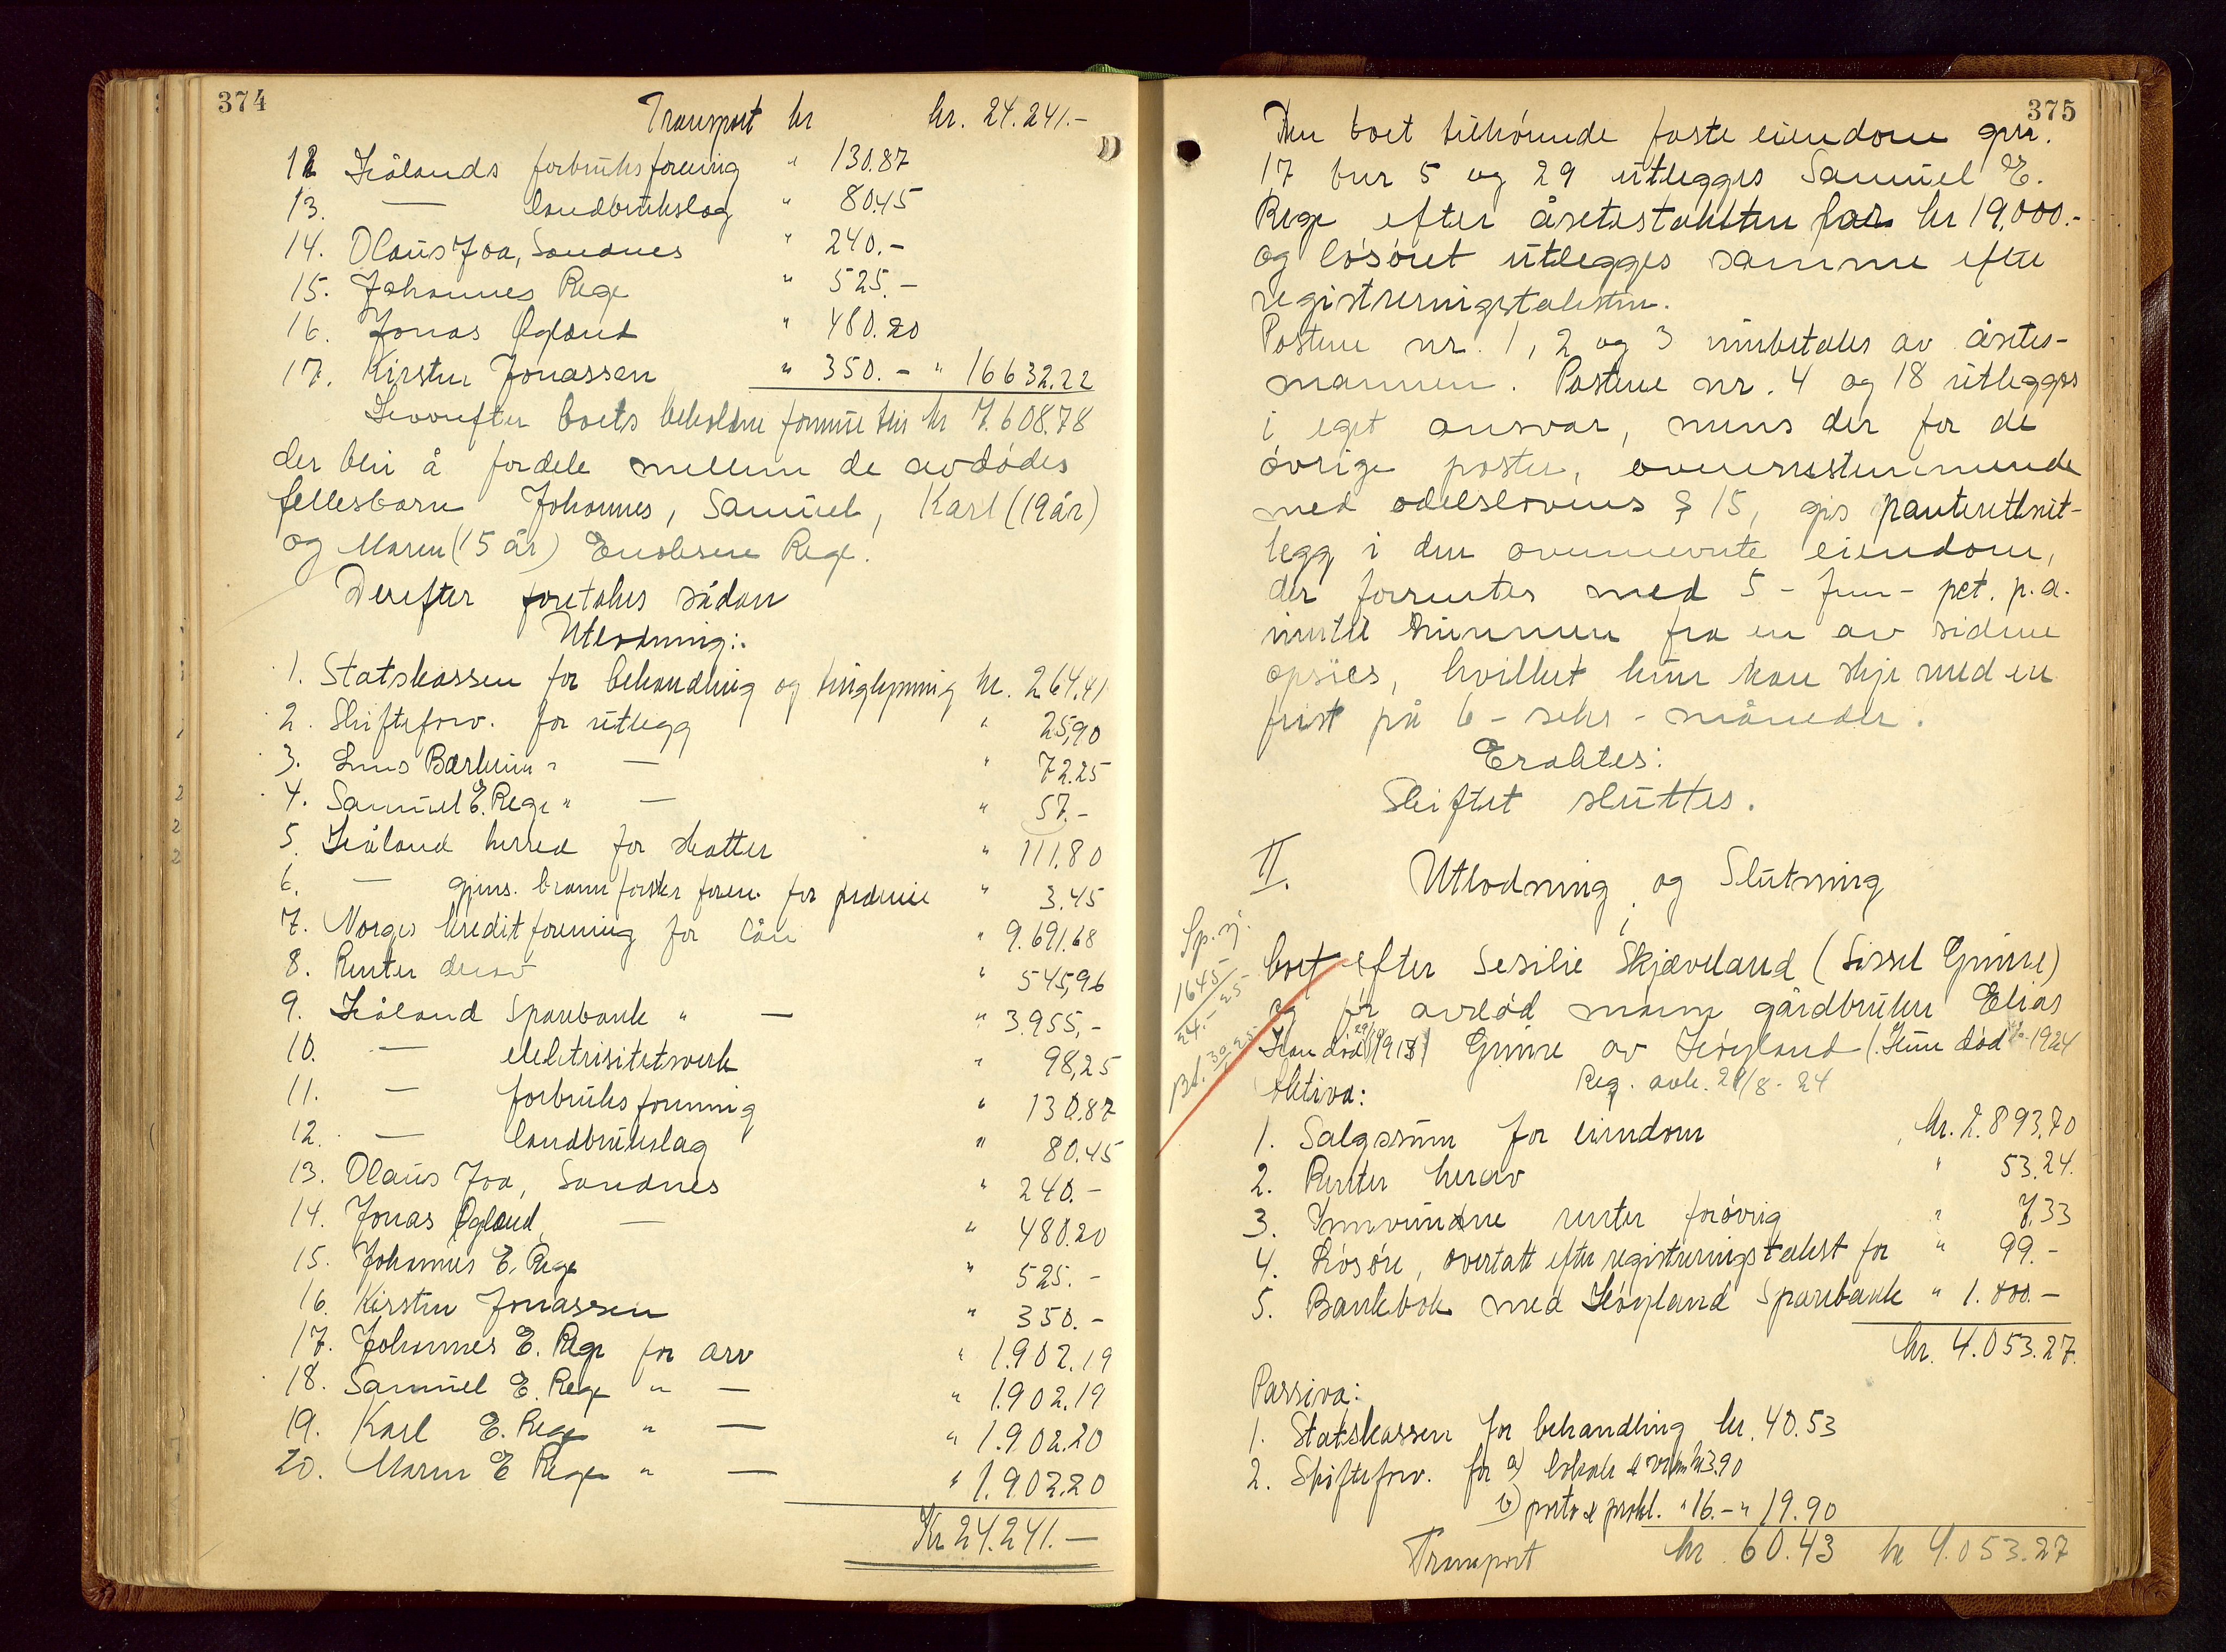 374
Transport kr kr. 24.241.-
12 Hålands forbruksforening " 130.87
13. — landbrukslag " 80.45
14. Olaus Joa, Sandnes " 240.-
15. Johannes Rege " 525.-
16. Jonas Øgland " 480.20
17. Kirsten Jonassen " 350.- " 16632.22
Hvorefter boets beholdne formue blir kr 7.608.78
der blir å fordele mellem de avdødes
fellesbarn Johannes, Samuel, Karl (19 år)
og Maren (15 år) Enoksen Rege.
Derefter foretokes sådan
Utlodning:
1. Statskassen for behandling og tinglysning kr. 264.41
2. Skifteforv. for utlegg " 25,90
3. Lens Barheim " — " 72.25
4. Samuel E. Rege " — " 57.-
5. Håland herred for skatter " 111.80
6. — gjens. brannforsikr foren. for premie " 3.45
7. Norges kreditforening for lån " 9.691.68
8. Renter derav " 545,96
9. Håland Sparebank " — " 3.955,-
10. — elektrisitetsverk " 98,25
11. — forbruksforening " 130.87
12. — landbrukslag " 80.45
13. Olaus Joa, Sandnes " 240.-
14. Jonas Øgland, — " 480.20
15. Johannes E. Rege " 525.-
16. Kirsten Jonassen " 350.-
17. Johannes E. Rege for arv " 1.902.19
18. Samuel E. Rege " — " 1.902.19
19. Karl E. Rege " — " 1.902.20
20. Maren E Rege " — " 1.902.20
Kr 24.241.-
375
Den boet tilhørende faste eiendom gnr.
17 bnr 5 og 29 utlegges Samuel E.
Rege efter åsetestaksten for kr 19,000.-
og løsøret utlegges samme efter
registreringstaksten.
Postene nr. 1, 2 og 3 innbetales av åsetes-
mannen. Postene nr. 4 og 18 utlegges
i eget ansvar, mens der for de
øvrige poster, overensstemmende
med odelslovens § 15, gis panterettsut-
legg i den ovennevnte eiendom,
der forrentes med 5 - fem - pct. p.a.
inntil summen fra en av sidene
opsies, hvilket kun kan skje med en
frist på 6 - seks - måneder.
Eraktes:
Skiftet sluttes.
II. Utlodning og Slutning
i
Sp. j.
1645
24.- 25-
Bd. 30 25-
boet efter Sesilie Skjæveland (Sissel Grinne)
og før avdød mann gårdbruker Elias
Han død 29/9 1918) Grinne av Høyland (Hun død 1924
Reg. avh. 21/8-24
Aktiva:
1. Salgssum for eiendom kr. 2.893.70
2. Renter herav " 53.24.
3. Innvundne renter forøvrig " 7.33
4. Løsøre, overtatt efter registreringstakst for " 99.-
5. Bankbok med Høyland Sparebank " 1.000.-
kr. 4.053.27.
Passiva:
1. Statskassen for behandling kr. 40.53
2. Skifteforv. for a) lokale & kr 3.90
b) porto & prokl. " 16.- " 19.90
Transport kr 60.43 kr 4.053.27